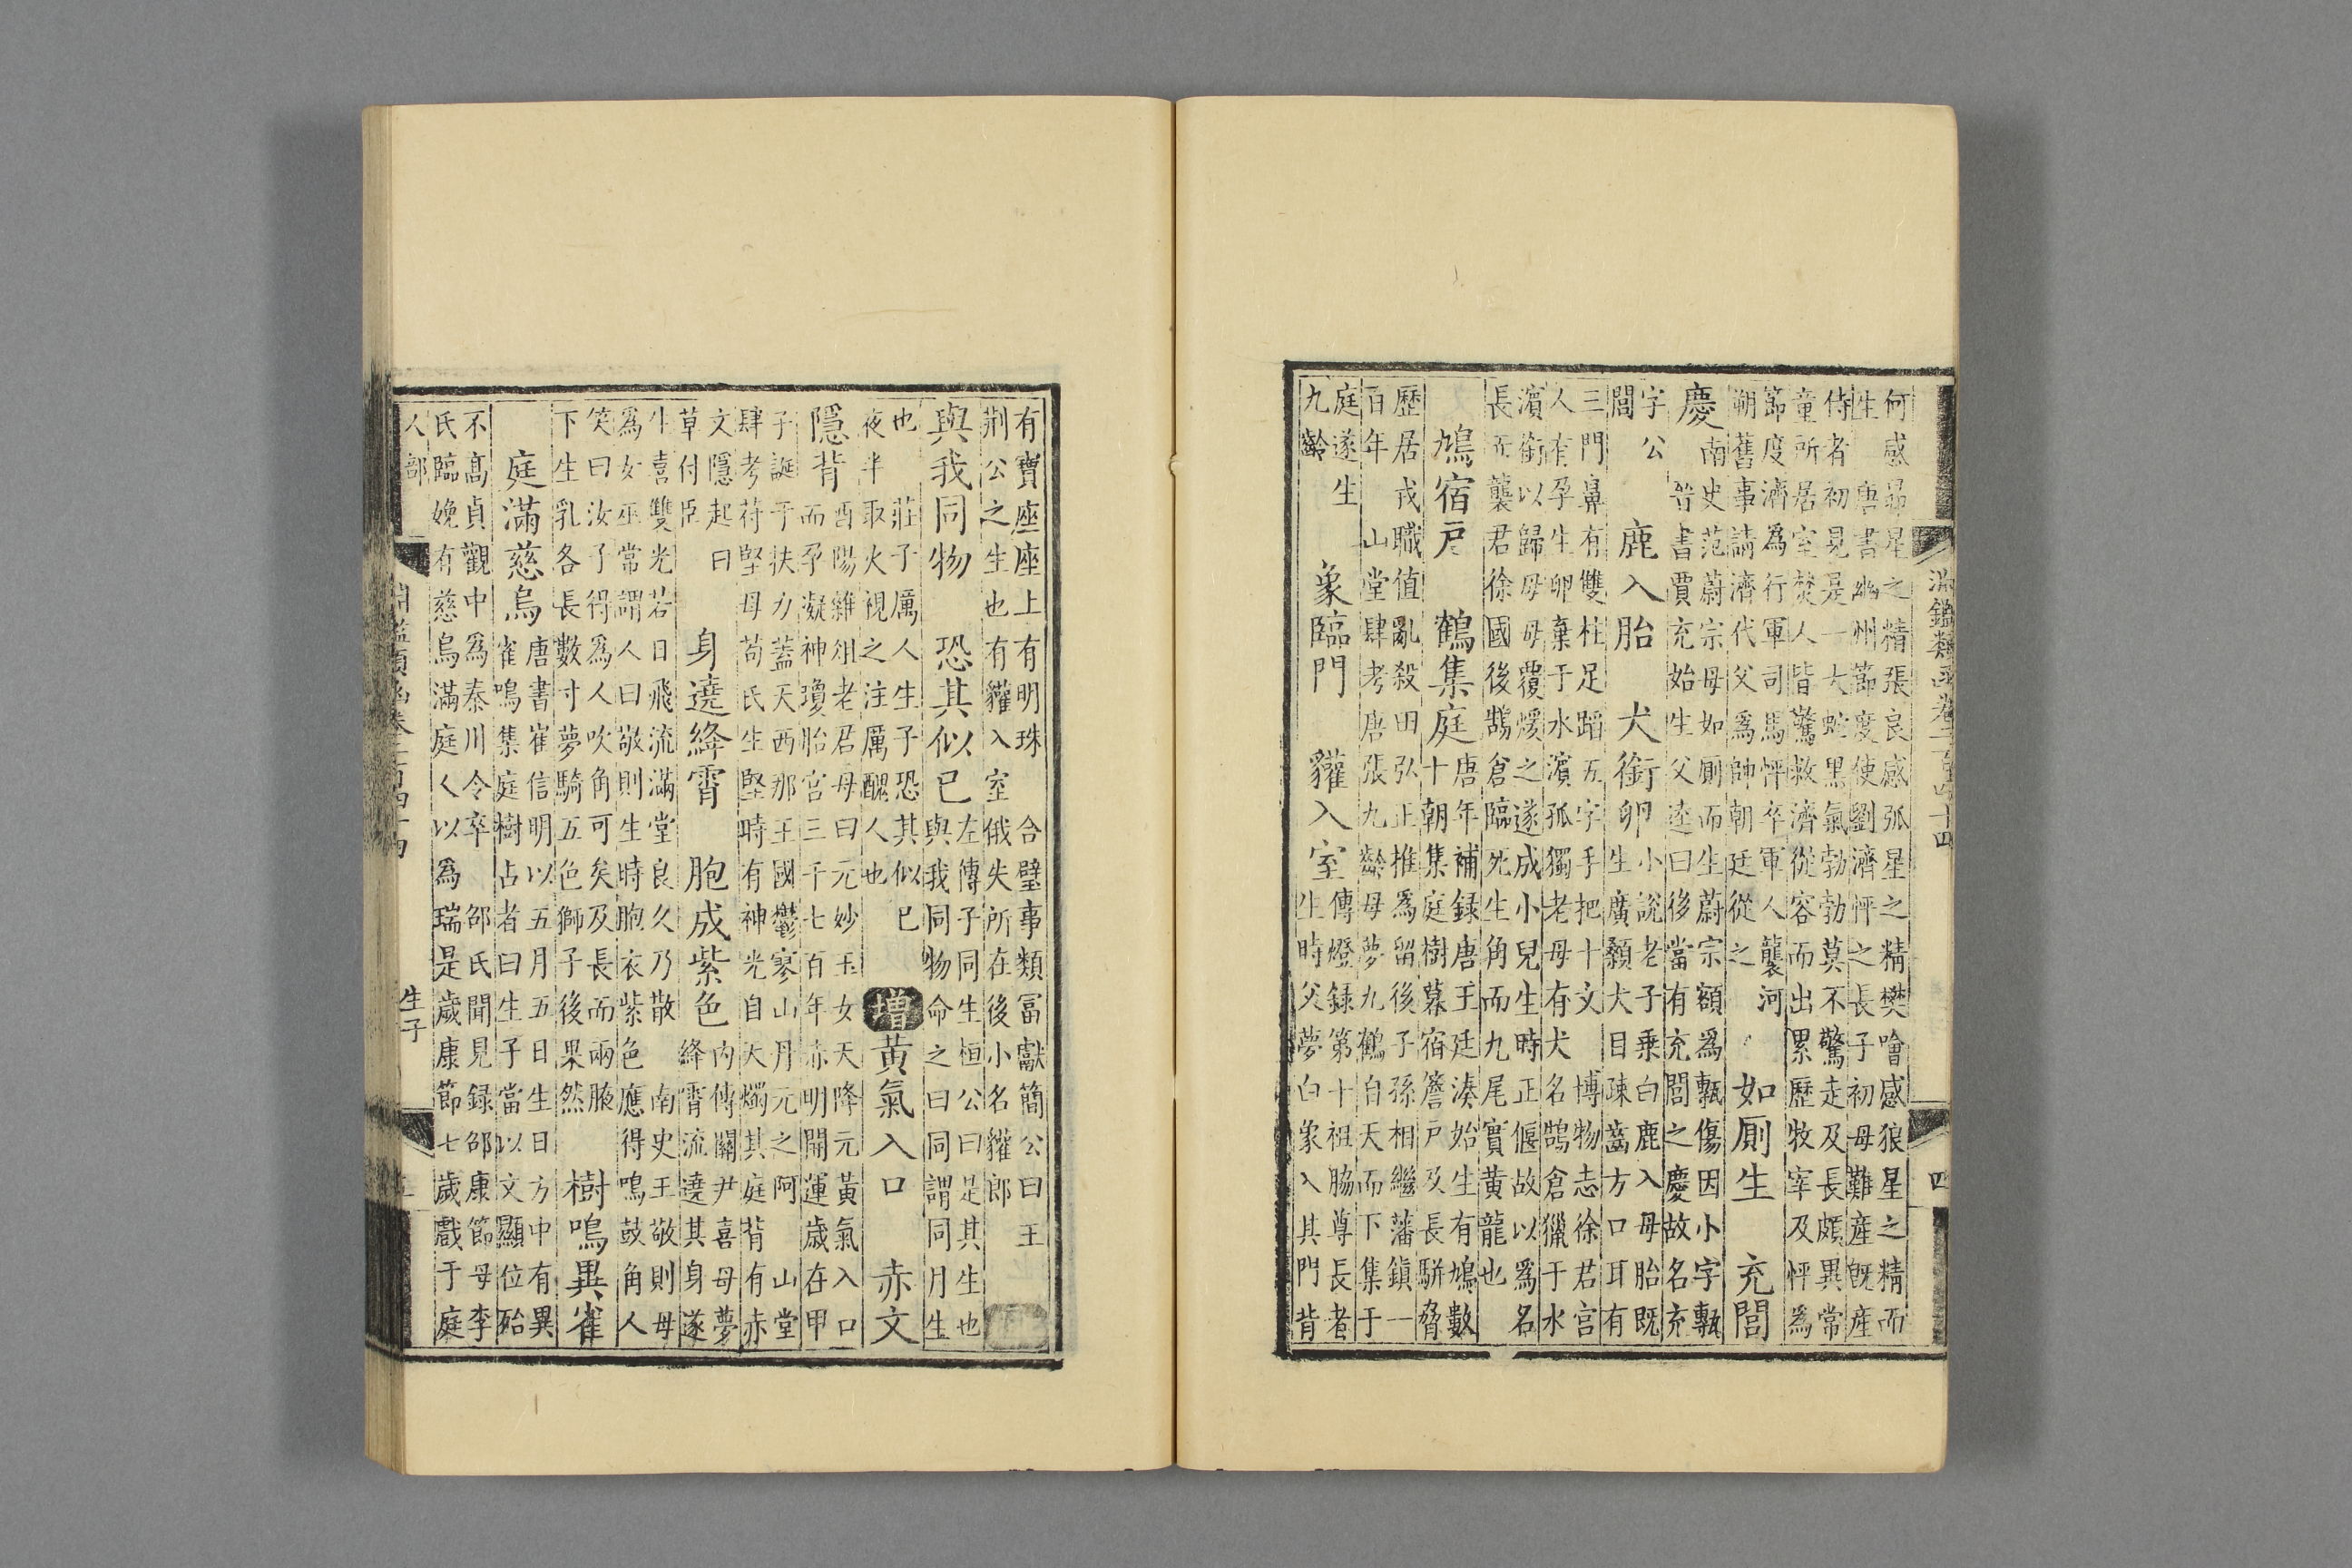 淵鑑類函卷二百四十四 四
何感昴星之精張良感弧星之精樊噲感狼星之精而
生 唐書幽州節度使劉濟怦之長子初母難産旣産
侍者初見是一大蛇黑氣勃勃莫不驚走及長頗異常
童所居室焚人皆驚救濟從容而出累歷牧宰及怦爲
節度濟爲行軍司馬怦卒軍人襲河
朔舊事請濟代父爲帥朝廷從之
如厠生 充閭
慶
南史范蔚宗母如厠而生蔚宗額爲甎傷因小字甎
晉書賈充始生父逵曰後當有充閭之慶故名充
字公
閭
鹿入胎 犬銜卵
小說老子乗白鹿入母胎既
生廣顙大目疎齒方口耳有
三門鼻有雙柱足蹈五字手把十文 博物志徐君宫
人有孕生卵棄于水濱孤獨老母有犬名鵠倉獵于水
濱銜以歸母母覆煖之遂成小兒生時正偃故以爲名
長而襲君徐國後鵠倉臨死生角而九尾實黄龍也
鳩宿戸 鶴集庭
唐年補録唐王廷湊始生有鳩數
十朝集庭樹暮宿簷戸及長駢脅
歷居戎職值亂殺田弘正推爲留後子孫相繼藩鎮一
百年 山堂肆考唐張九齡母夢九鶴自天而下集于
庭遂生
九齡
象臨門 貛入室
傳燈録第十祖脇尊長者
生時父夢白象入其門背
有寶座座上有明珠 合璧事類冨獻簡公曰王
荆公之生也有貛入室俄失所在後小名貛郎
與我同物 恐其似已
左傳子同生桓公曰是其生也
與我同物命之曰同謂同月生
也 莊子厲人生子恐其似已
夜半取火視之注厲醜人也
增 黄氣入口 赤文
隱背
酉陽雜俎老君母曰元妙玉女天降元黃氣入口
而孕凝神瓊胎宫三千七百年赤明開運歳在甲
子誕于扶力蓋天西那王國鬱寥山丹元之阿 山堂
肆考苻堅母苟氏生堅時有神光自天燭其庭背有赤
文隱起曰
草付臣
身遶絳霄 胞成紫色
内傳關尹喜母夢
絳霄流遶其身遂
生喜雙光若日飛流滿堂良久乃散 南史王敬則母
爲女巫常謂人曰敬則生時胞衣紫色應得鳴鼓角人
笑曰汝子得爲人吹角可矣及長而兩腋
下生乳各長數寸夢騎五色獅子後果然
樹鳴異雀
庭滿慈烏
唐書崔信明以五月五日生日方中有異
雀鳴集庭樹占者曰生子當以文顯位殆
不髙貞觀中爲秦川令卒 邵氏聞見録邵康節母李
氏臨娩有慈烏滿庭人以爲瑞是歳康節七歳戲于庭
人部 淵鑑類函卷二百四十四 生子 五